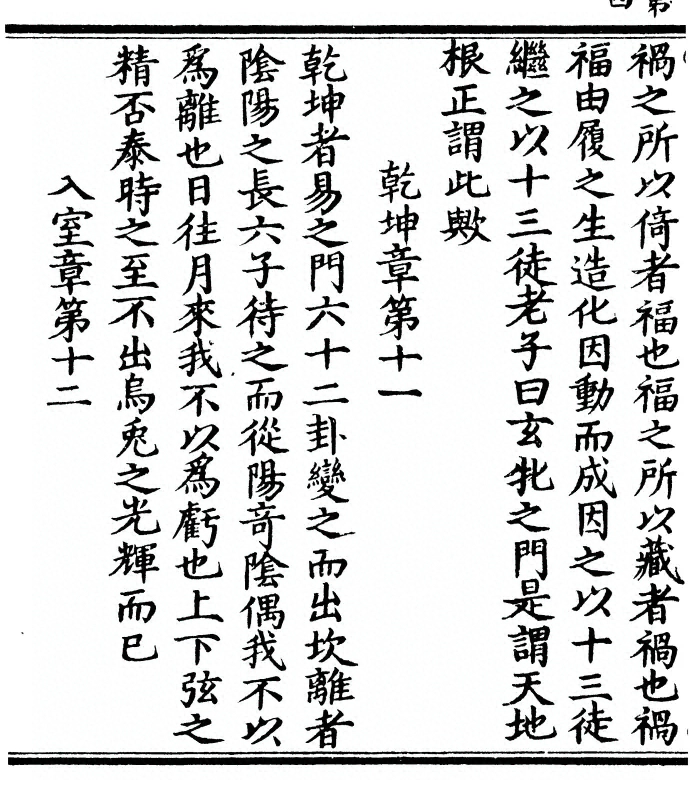 禍之所以倚者福也福之所以藏者禍也禍
福由履之生造化因動而成因之以十三徒
繼之以十三徒老子曰玄牝之門是謂天地
根正謂此歟
乾坤章第十一
乾坤者易之門六十二卦變之而出坎離者
陰陽之長六子待之而從陽奇陰偶我不以
爲離也日往月來我不以爲虧也上下弦之
精否泰時之至不出烏兎之光輝而已
入室章第十二